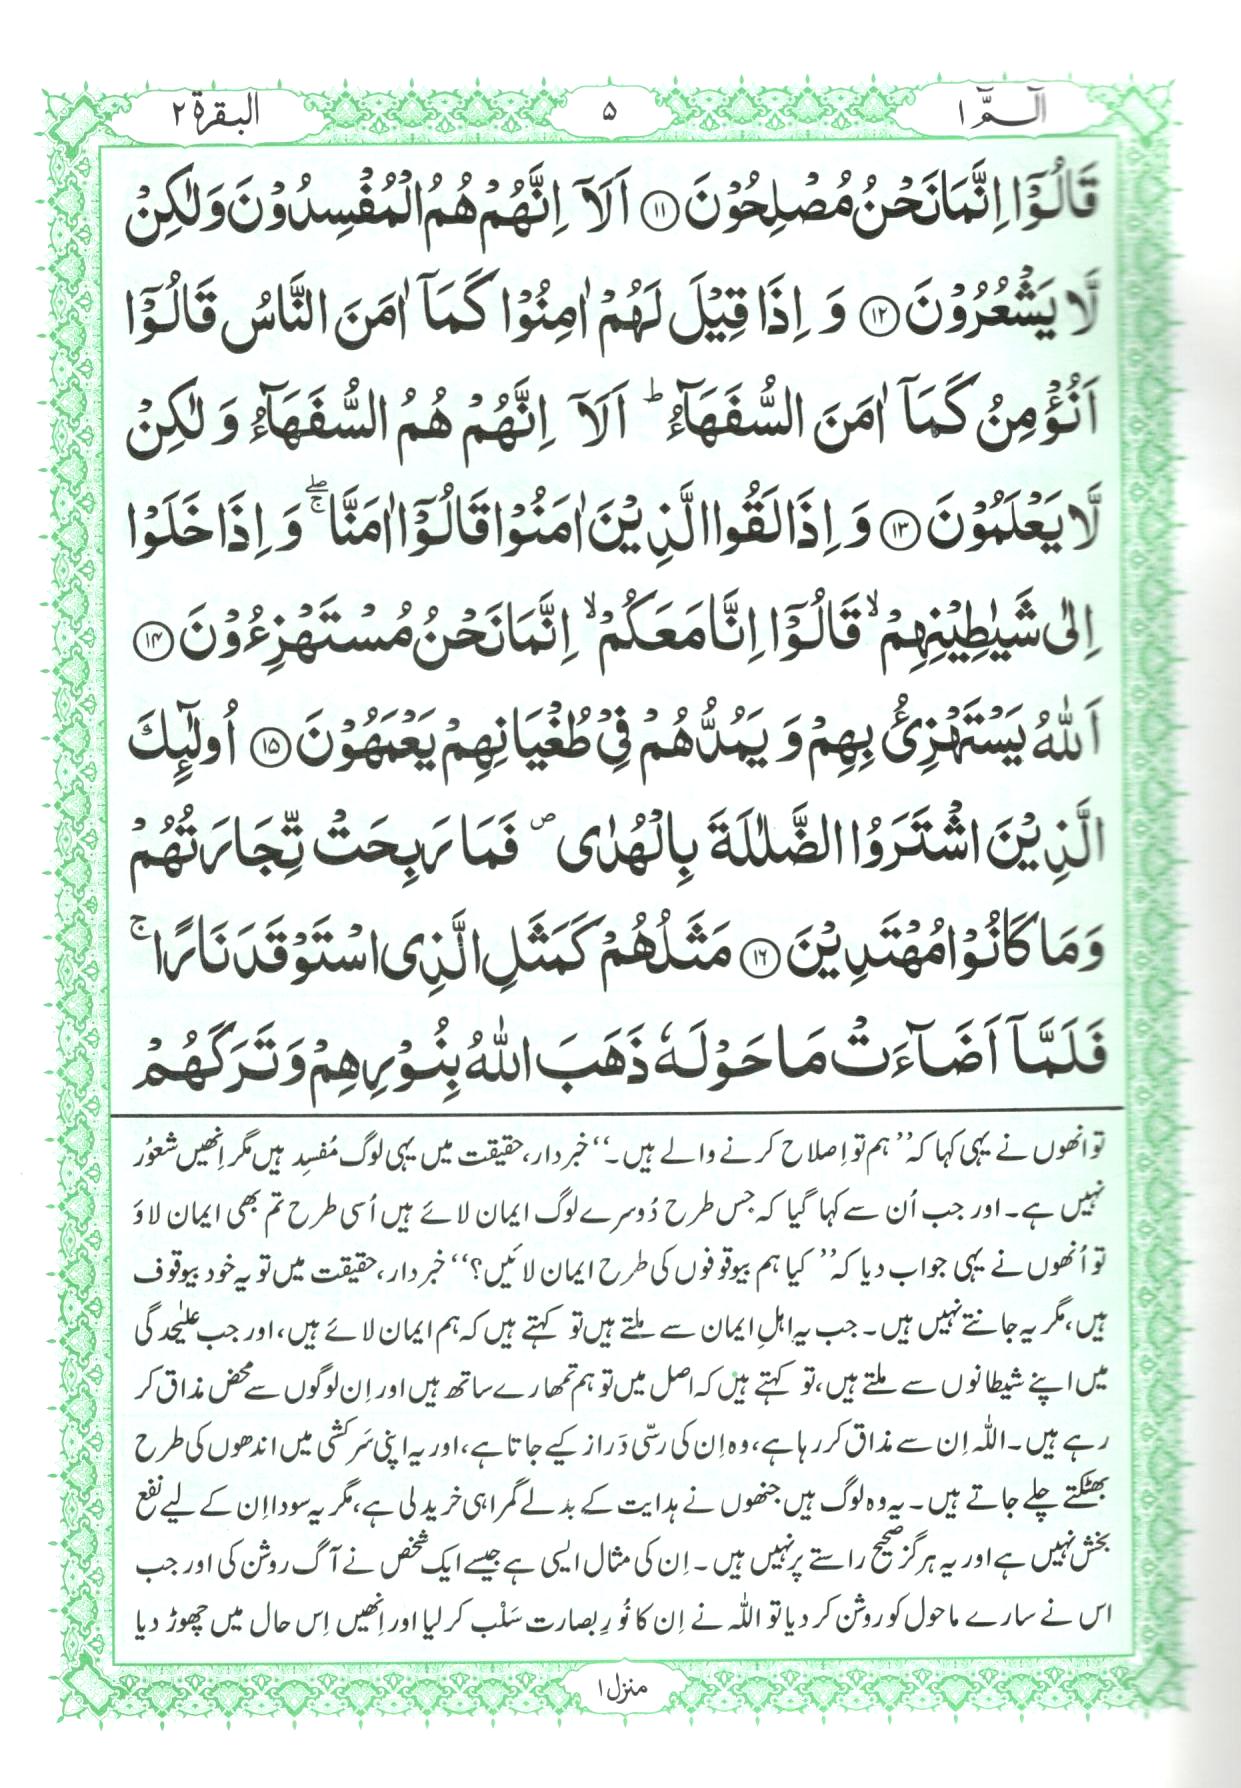 الٓـمّٓ ۱
۵
البقرة ۲
قَالُوْۤا اِنَّمَا نَحْنُ مُصْلِحُوْنَ ﴿۱۱﴾ اَلَاۤ اِنَّهُمْ هُمُ الْمُفْسِدُوْنَ وَلٰكِنْ
لَّا يَشْعُرُوْنَ ﴿۱۲﴾ وَ اِذَا قِيْلَ لَهُمْ اٰمِنُوْا كَمَاۤ اٰمَنَ النَّاسُ قَالُوْۤا
اَنُؤْمِنُ كَمَاۤ اٰمَنَ السُّفَهَآءُ ؕ اَلَاۤ اِنَّهُمْ هُمُ السُّفَهَآءُ وَ لٰكِنْ
لَّا يَعْلَمُوْنَ ﴿۱۳﴾ وَ اِذَا لَقُوا الَّذِيْنَ اٰمَنُوْا قَالُوْۤا اٰمَنَّا ۚۖ وَ اِذَا خَلَوْا
اِلٰى شَيٰطِيْنِهِمْ ۙ قَالُوْۤا اِنَّا مَعَكُمْ ۙ اِنَّمَا نَحْنُ مُسْتَهْزِءُوْنَ ﴿۱۴﴾
اَللّٰهُ يَسْتَهْزِئُ بِهِمْ وَ يَمُدُّهُمْ فِيْ طُغْيَانِهِمْ يَعْمَهُوْنَ ﴿۱۵﴾ اُولٰٓئِكَ
الَّذِيْنَ اشْتَرَوُا الضَّلٰلَةَ بِالْهُدٰى ۪ فَمَا رَبِحَتْ تِّجَارَتُهُمْ
وَمَا كَانُوْا مُهْتَدِيْنَ ﴿۱۶﴾ مَثَلُهُمْ كَمَثَلِ الَّذِى اسْتَوْقَدَ نَارًا ۚ
فَلَمَّاۤ اَضَآءَتْ مَا حَوْلَهٗ ذَهَبَ اللّٰهُ بِنُوْرِهِمْ وَتَرَكَهُمْ
تو انھوں نے یہی کہا کہ ’’ہم تو اِصلاح کرنے والے ہیں۔‘‘ خبردار، حقیقت میں یہی لوگ مُفسِد ہیں مگر اِنھیں شعُور
نہیں ہے۔ اور جب اُن سے کہا گیا کہ جس طرح دُوسرے لوگ ایمان لائے ہیں اُسی طرح تم بھی ایمان لاؤ
تو اُنھوں نے یہی جواب دیا کہ ’’کیا ہم بیوقوفوں کی طرح ایمان لائیں؟‘‘ خبردار، حقیقت میں تو یہ خود بیوقوف
ہیں، مگر یہ جانتے نہیں ہیں۔ جب یہ اہلِ ایمان سے ملتے ہیں تو کہتے ہیں کہ ہم ایمان لائے ہیں، اور جب علیٰحدگی
میں اپنے شیطانوں سے ملتے ہیں، تو کہتے ہیں کہ اصل میں تو ہم تمھارے ساتھ ہیں اور اِن لوگوں سے محض مذاق کر
رہے ہیں۔ اللہ اِن سے مذاق کر رہا ہے، وہ اِن کی رسّی دَراز کیے جاتا ہے، اور یہ اپنی سَرکشی میں اندھوں کی طرح
بھٹکتے چلے جاتے ہیں۔ یہ وہ لوگ ہیں جنھوں نے ہدایت کے بدلے گمراہی خرید لی ہے، مگر یہ سودا اِن کے لیے نفع
بخش نہیں ہے اور یہ ہرگز صحیح راستے پر نہیں ہیں۔ اِن کی مثال ایسی ہے جیسے ایک شخص نے آگ روشن کی اور جب
اس نے سارے ماحول کو روشن کر دیا تو اللہ نے اِن کا نُورِ بصارت سَلْب کر لیا اور اِنھیں اِس حال میں چھوڑ دیا
منزل ۱